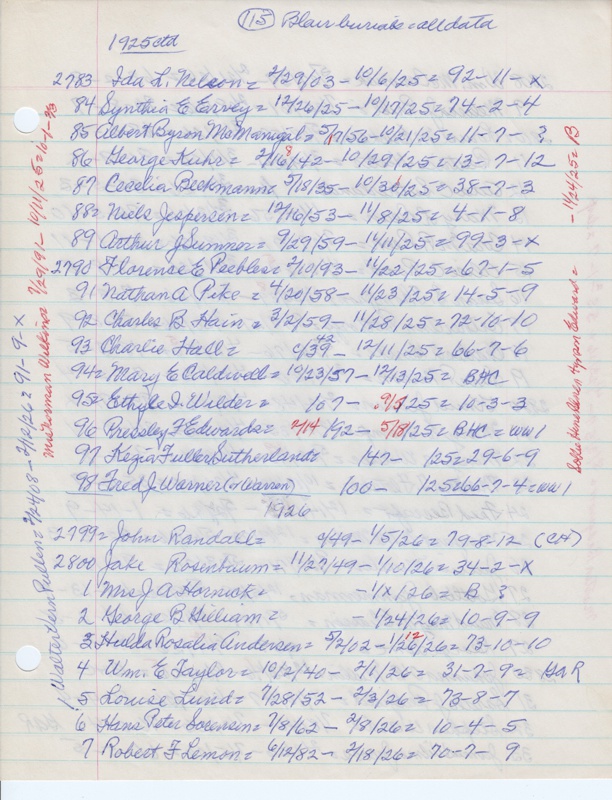 115 Blair burials = all data
1925 ctd
2783 Ida L. Nelson = 2/29/03 - 10/6/25 = 92-11-x
84 Synthia E Ervey = 12/26/25 - 10/17/25 = 74-2-4
85 Albert Byron McManigal = 5/17/56 - 10/21/25 = 11-7- ?
86 George Kuhr = 2/16/42 - 10/29/25 = 13-7-12
87 Cecelia Beckmann = 5/18/35 - 10/30/25 = 38-7-3
88 = Niels Jespersen = 12/16/53 - 11/8/25 = 4-1-8
89 Arthur J Sumner = 9/29/59 - 11/11/25 = 99-3-x
2790 Florence E Peebles = 2/10/93 - 11/22/25 = 67-1-5
91 Nathan A Pike = 4/20/58 - 11/23/25 = 14-5-9
92 Charles B Hain = 3/2/59 - 11/28/25 = 72-10-10
93 Charlie Hall = c/39 42 - 12/11/25 = 66-7-6
94 = Mary E Caldwell = 10/23/57 - 12/13/25 = BHC
95 = Ethyle I Wilder = 107 - 9/5/25 = 10-3-3
96 Pressley F Edwards = 2/4/92 - 5/18/25 = BHC = WW1
97 Kezia Fuller Sutherland = 147 - 125 = 29-6-9
98 Fred J. Warner (or Warren) 100 - 125 = 66-7-4 = WW1
1926
2799 = John Randall = c/49 - 1/5/26 = 79-8-12 (CH)
2800 Jake Rosenbaum = 11/27/49 - 1/10/26 = 34-2-x
1 Mrs J A Hornick = - 1/x/26 = B ?
2 George B Gilliam = - 1/24/26 = 10-9-9
3 Hulda Rosalia Andersen = 5/2/02 - 1/26/26 = 73-10-10
12
4 Wm. E Taylor = 10/2/40 - 2/1/26 = 31-7-9 = GAR
5 Louise Lund = 7/28/52 - 2/3/26 = 73-8-7
6 Hans Peter Sorensen = 7/8/62 - 2/8/26 = 10-4-5
7 Robert F Lemon = 6/12/82 - 2/18/26 = 70-7-9
! Walter Vern Pullen = 2/24/08 - 2/12/26 = 91-9-x
7/29/91 - 10/11/25 = 101-1-93
- 11/24/25 = B